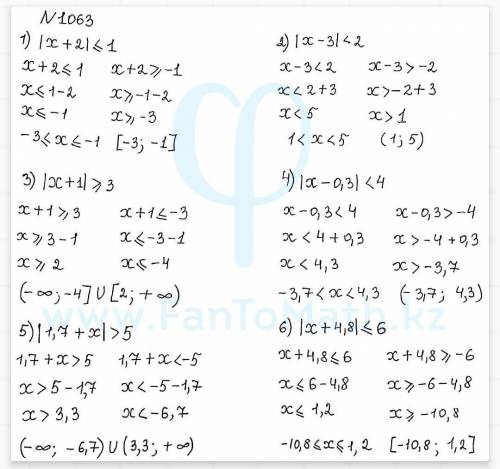 N1063
1) |x+2|≤1
x+2≤1 x+2≥-1
x≤1-2 x≥-1-2
x≤-1 x≥-3
-3≤x≤-1 [-3; -1]
2) |x-3|<2
x-3<2 x-3>-2
x<2+3 x>-2+3
x<5 x>1
1<x<5 (1; 5)
3) |x+1|≥3
x+1≥3 x+1≤-3
x≥3-1 x≤-3-1
x≥2 x≤-4
(-∞; -4] U [2; +∞)
4) |x-0,3|<4
x-0,3<4 x-0,3>-4
x<4+0,3 x>-4+0,3
x<4,3 x>-3,7
-3,7<x<4,3 (-3,7; 4,3)
5) |1,7+x|>5
1,7+x>5 1,7+x<-5
x>5-1,7 x<-5-1,7
x>3,3 x<-6,7
(-∞; -6,7) U (3,3; +∞)
6) |x+4,8|≤6
x+4,8≤6 x+4,8≥-6
x≤6-4,8 x≥-6-4,8
x≤1,2 x≥-10,8
-10,8≤x≤1,2 [-10,8; 1,2]
www.FanToMath.kz